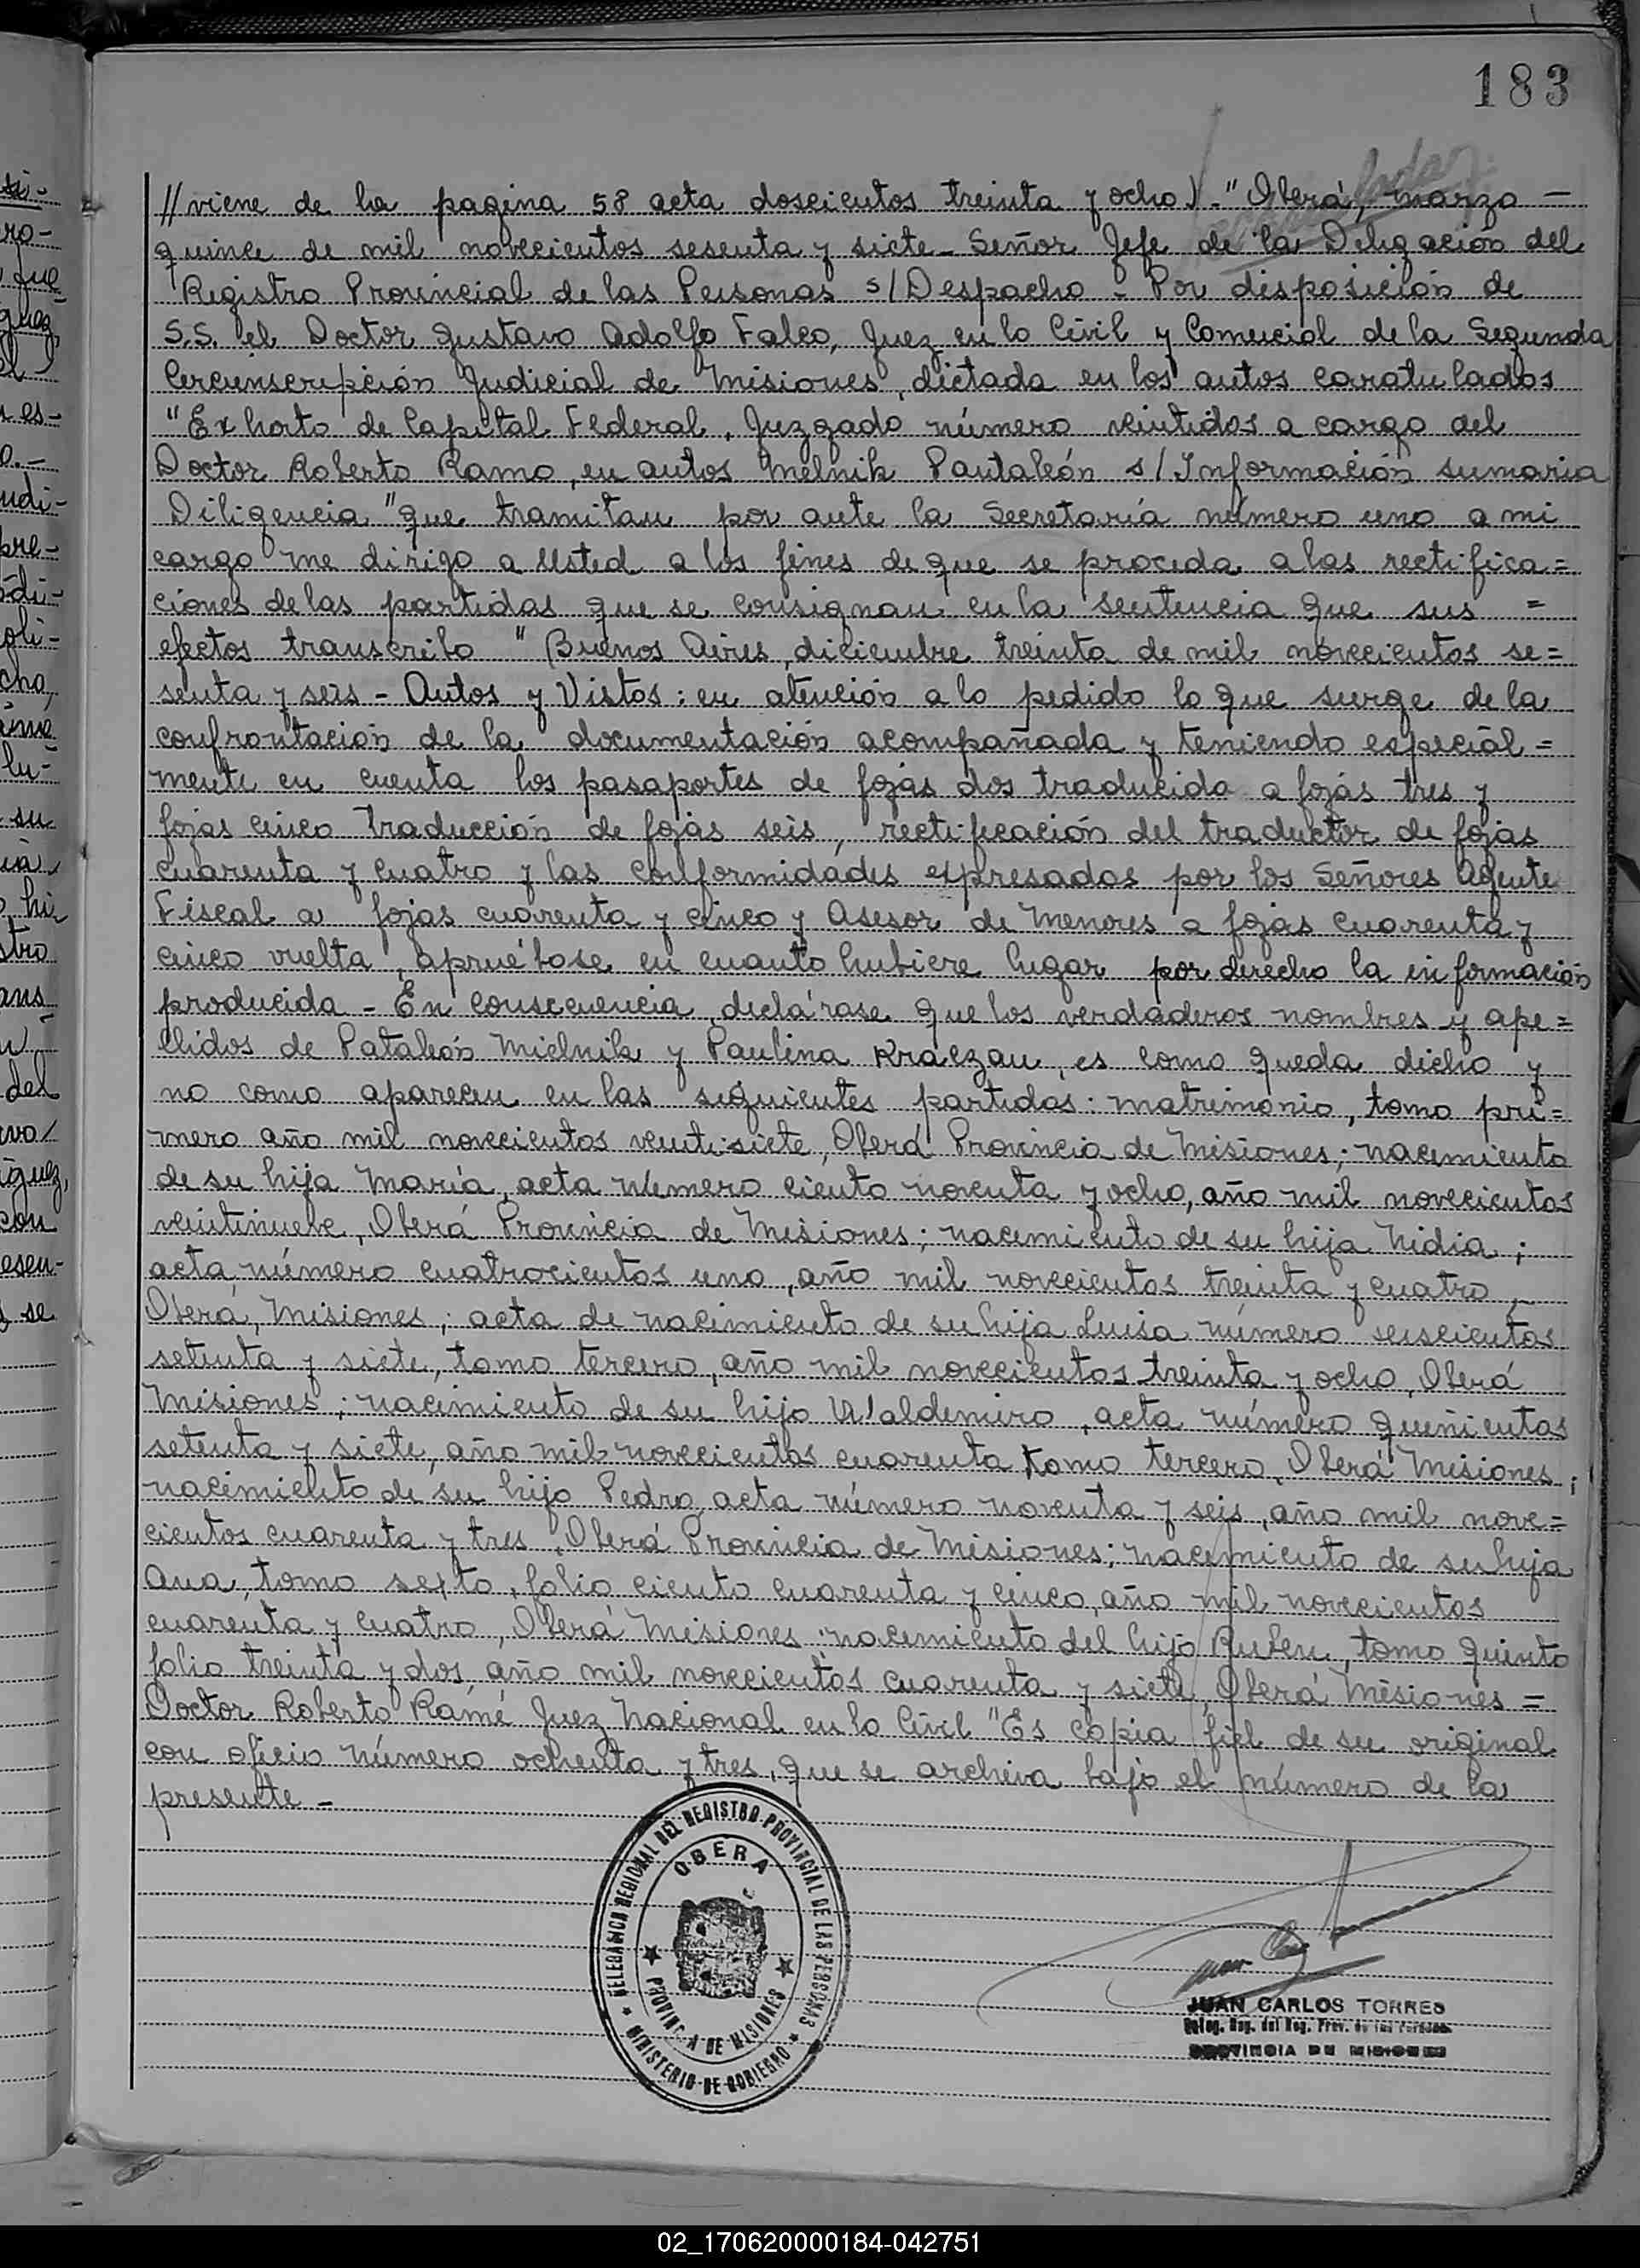 183
//viene de la pagina 58 acta doscientos treinta y ocho). "Oberá, marzo —
quince de mil novecientos sesenta y siete - Señor Jefe de la Delegación del
Registro Provincial de las Personas s/Despacho - Por disposición de
S.S. el Doctor Gustavo Adolfo Falco, Juez en lo Civil y Comercial de la Segunda
Circunscripción Judicial de Misiones, dictada en los autos caratulados
"Exhorto de Capital Federal, Juzgado número veintidos a cargo del
Doctor Roberto Ramo, en autos Melnik Pantaleón s/Información sumaria
Diligencia" que tramitan por ante la Secretaría número uno a mi
cargo me dirigo a Usted a los fines de que se proceda a las rectifica=
ciones de las partidas que se consignan en la sentencia que sus =
efectos transcribo "Buenos Aires, diciembre treinta de mil novecientos se=
senta y seis - Autos y Vistos: en atención a lo pedido lo que surge de la
confrontación de la documentación acompañada y teniendo especial=
mente en cuenta los pasaportes de fojas dos traducida a fojas tres y
fojas cinco traducción de fojas seis, rectificación del traductor de fojas
cuarenta y cuatro y las conformidades expresadas por los Señores Agente
Fiscal a fojas cuarenta y cinco y Asesor de Menores a fojas cuarenta y
cinco vuelta, apruébase en cuanto hubiere lugar por derecho la información
producida - En consecuencia, declárase que los verdaderos nombres y ape=
llidos de Pataleón Mielnik y Paulina Kraczau, es como queda dicho y
no como aparecen en las siguientes partidas: matrimonio, tomo pri=
mero año mil novecientos veintisiete, Oberá Provincia de Misiones; nacimiento
de su hija María, acta número ciento noventa y ocho, año mil novecientos
veintinueve, Oberá Provincia de Misiones; nacimiento de su hija Nidia;
acta número cuatrocientos uno, año mil novecientos treinta y cuatro,
Oberá, Misiones; acta de nacimiento de su hija Luisa número seiscientos
setenta y siete, tomo tercero, año mil novecientos treinta y ocho, Oberá
Misiones; nacimiento de su hijo Waldemiro, acta número quinientos
setenta y siete, año mil novecientos cuarenta tomo tercero, Oberá Misiones;
nacimiento de su hijo Pedro, acta número noventa y seis, año mil nove=
cientos cuarenta y tres, Oberá Provincia de Misiones; nacimiento de su hija
Ana, tomo sexto, folio ciento cuarenta y cinco, año mil novecientos
cuarenta y cuatro, Oberá Misiones; nacimiento del hijo Ruben, tomo quinto
folio treinta y dos, año mil novecientos cuarenta y siete, Oberá Misiones =
Doctor Roberto Ramé Juez Nacional en lo Civil "Es copia fiel de su original
con oficio número ochenta y tres, que se archiva bajo el número de la
presente -
DELEGACION REGIONAL DEL REGISTRO PROVINCIAL DE LAS PERSONAS
OBERA
PROVINCIA DE MISIONES
MINISTERIO DE GOBIERNO
JUAN CARLOS TORRES
Deleg. Reg. del Reg. Prov. de las Personas
PROVINCIA DE MISIONES
02_170620000184-042751